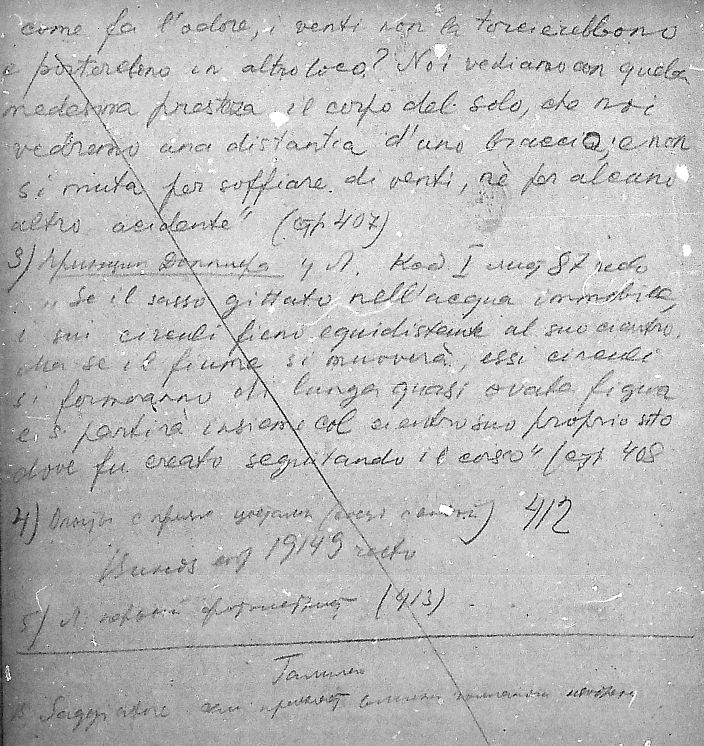 come fa l'odore, i venti non la torcierebbono
e porterebono in altro loco? Noi vediamo con quela
medesima presteza il corpo del solo, che noi
vedremo una distantia d'uno braccio; e non
si muta per soffiare di venti, nè per alcuno
altro acidente" (стр 407)
3) Принцип Допплера у Л. Код I лист 87 recto
"Se il sasso gittato nell'acqua immobile,
i sui circuli fieno equidistante al suo cientro.
Ma se il fiume si muoverà, essi circuli
si formoranno di lunga quasi ovata figura
e si partirà insieme col cientro suo proprio sito
dove fu creato seguitando il corso" (стр 408
4) Опыты с 412
19149 recto
5) Л. первый (413)
Галилей
Saggiatore